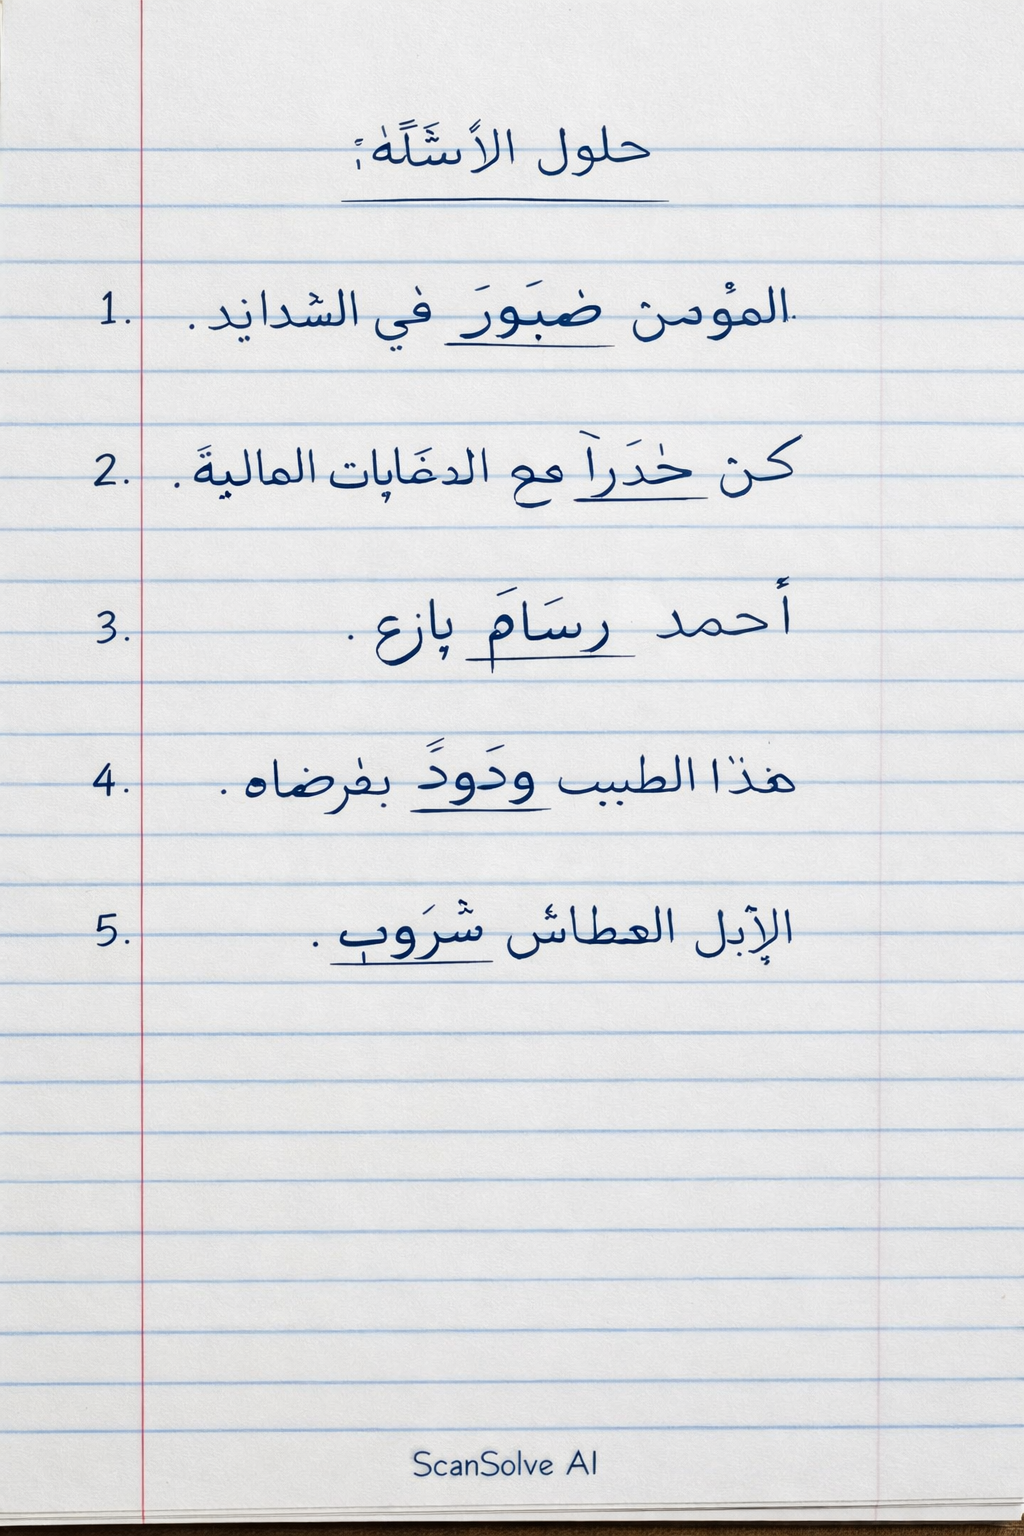 حلول الأسئلة:
1. المؤمن ضبَورَ في الشدايد.
2. كن خدَراً مع الدغابات المالية.
3. أحمد رسَامَ بازع.
4. هذا الطبيب ودَودً بفرضاه.
5. الإبل العطاش شرَوب.
ScanSolve AI